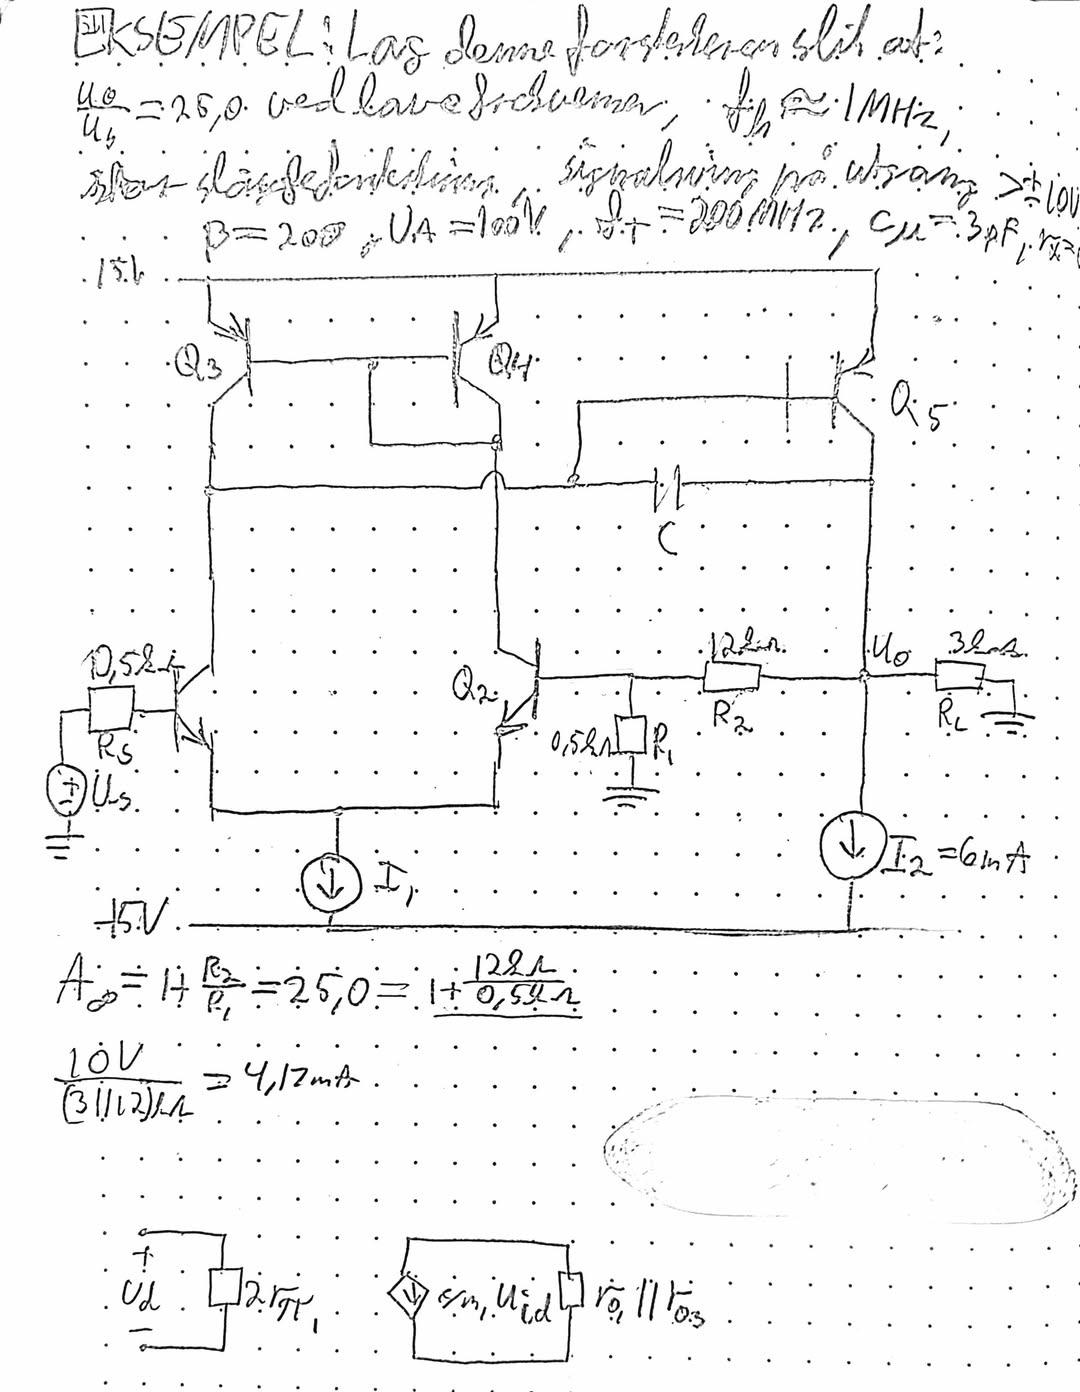 EKSEMPEL: Lag denne forsterkeren slik at:
uo/us = 25,0 ved lave frekvenser, fh ≈ 1MHz,
stor sløyfeforsterkning, signalsving på utgang > ±10V
β = 200, UA = 100V, fT = 200MHz, Cμ = 3pF, rx=
15V
Q3 Q4 Q5
C
0,5kΩ 12kΩ Uo 3kΩ
Q2 R2 RL
Rs 0,5kΩ R1
Us
I1 I2 = 6mA
-15V
A∞ = 1 + R2/R1 = 25,0 = 1 + 12kΩ/0,5kΩ
10V/(3||12)kΩ = 4,17mA
+
Ud 2rπ1 gm1 Uid ro1 || ro3
-